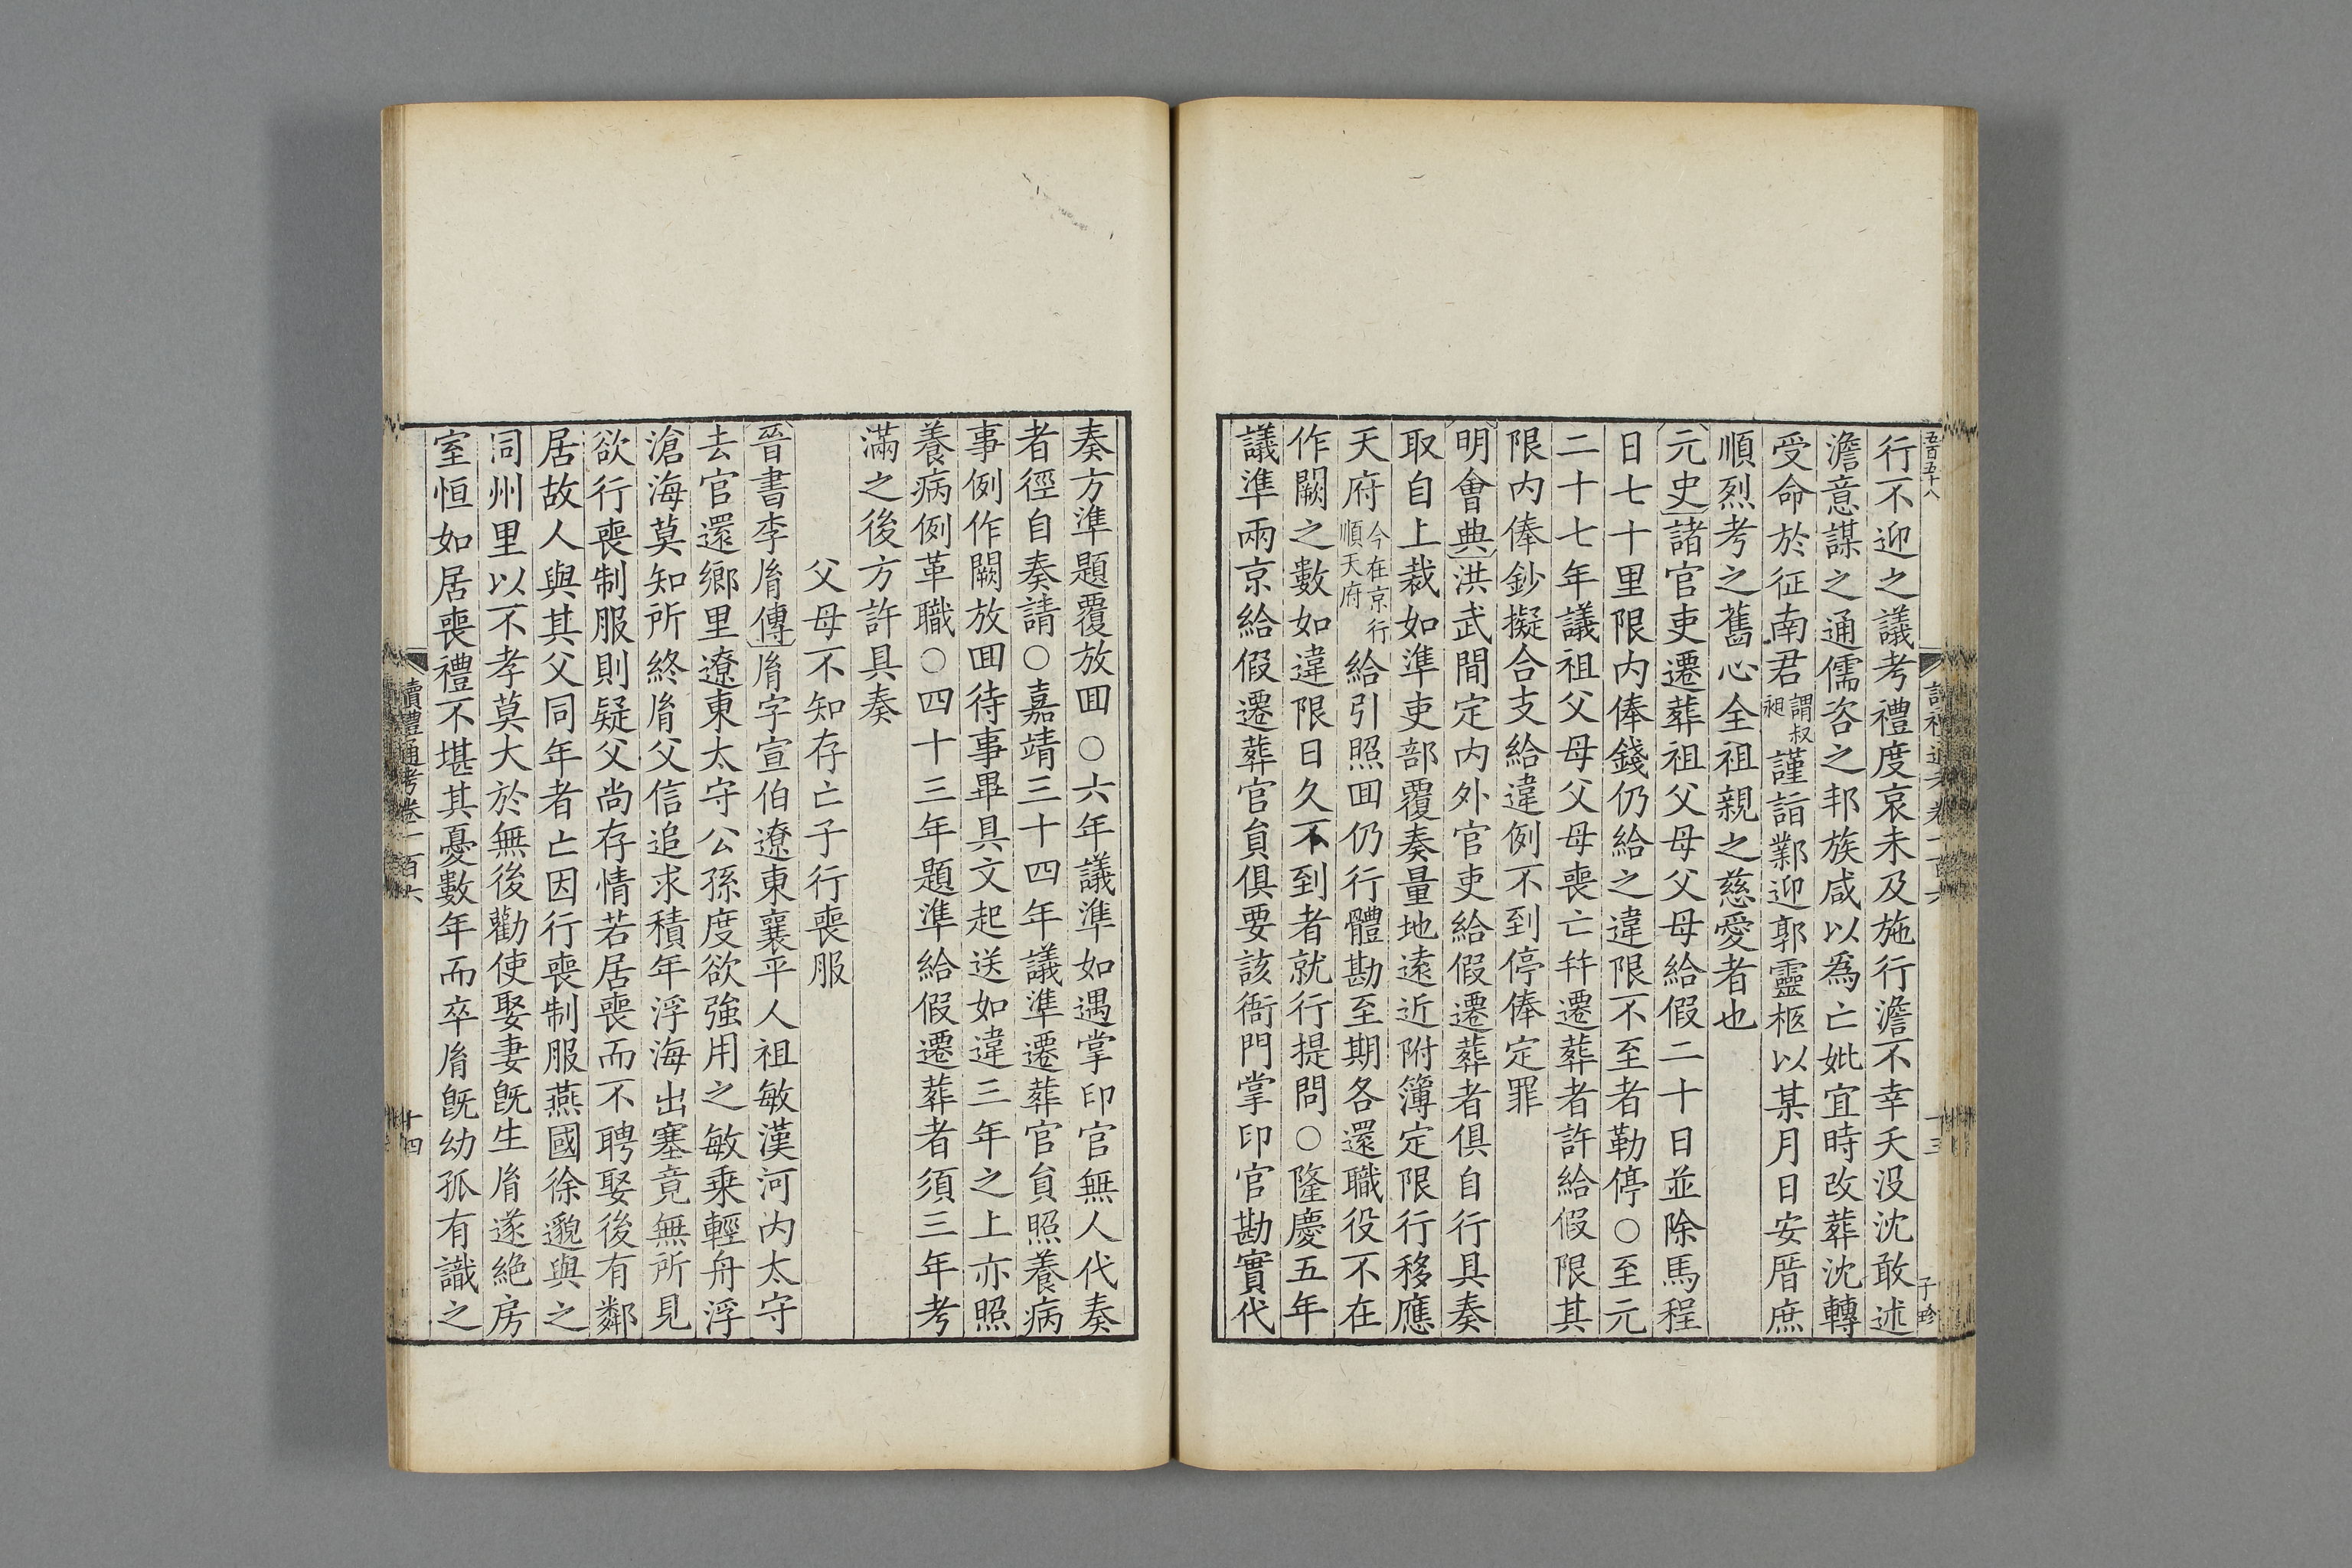 五百五十八
行不迎之議考禮度哀未及施行澹不幸夭没沈敢述
澹意謀之通儒咨之邦族咸以為亡妣宜時改葬沈轉
受命於征南君謂叔昶謹詣鄴迎郭靈柩以某月日安厝庶
順烈考之舊心全祖親之慈愛者也
元史諸官吏遷葬祖父母父母給假二十日並除馬程
日七十里限内俸錢仍給之違限不至者勒停○至元
二十七年議祖父母父母喪亡幷遷葬者許給假限其
限内俸鈔擬合支給違例不到停俸定罪
明會典洪武間定内外官吏給假遷葬者俱自行具奏
取自上裁如準吏部覆奏量地遠近附簿定限行移應
天府今在京行順天府給引照囬仍行體勘至期各還職役不在
作闕之數如違限日久不到者就行提問○隆慶五年
議準兩京給假遷葬官員俱要該衙門掌印官勘實代
十三
子珍
奏方準題覆放囬○六年議準如遇掌印官無人代奏
者徑自奏請○嘉靖三十四年議準遷葬官員照養病
事例作闕放囬待事畢具文起送如違三年之上亦照
養病例革職○四十三年題準給假遷葬者須三年考
滿之後方許具奏
父母不知存亡子行喪服
晉書李㣧傳㣧字宣伯遼東襄平人祖敏漢河内太守
去官還鄉里遼東太守公孫度欲強用之敏乗輕舟浮
滄海莫知所終㣧父信追求積年浮海出塞竟無所見
欲行喪制服則疑父尚存情若居喪而不聘娶後有鄰
居故人與其父同年者亡因行喪制服燕國徐邈與之
同州里以不孝莫大於無後勸使娶妻旣生㣧遂絕房
室恒如居喪禮不堪其憂數年而卒㣧旣幼孤有識之
讀禮通考卷一百六
十四